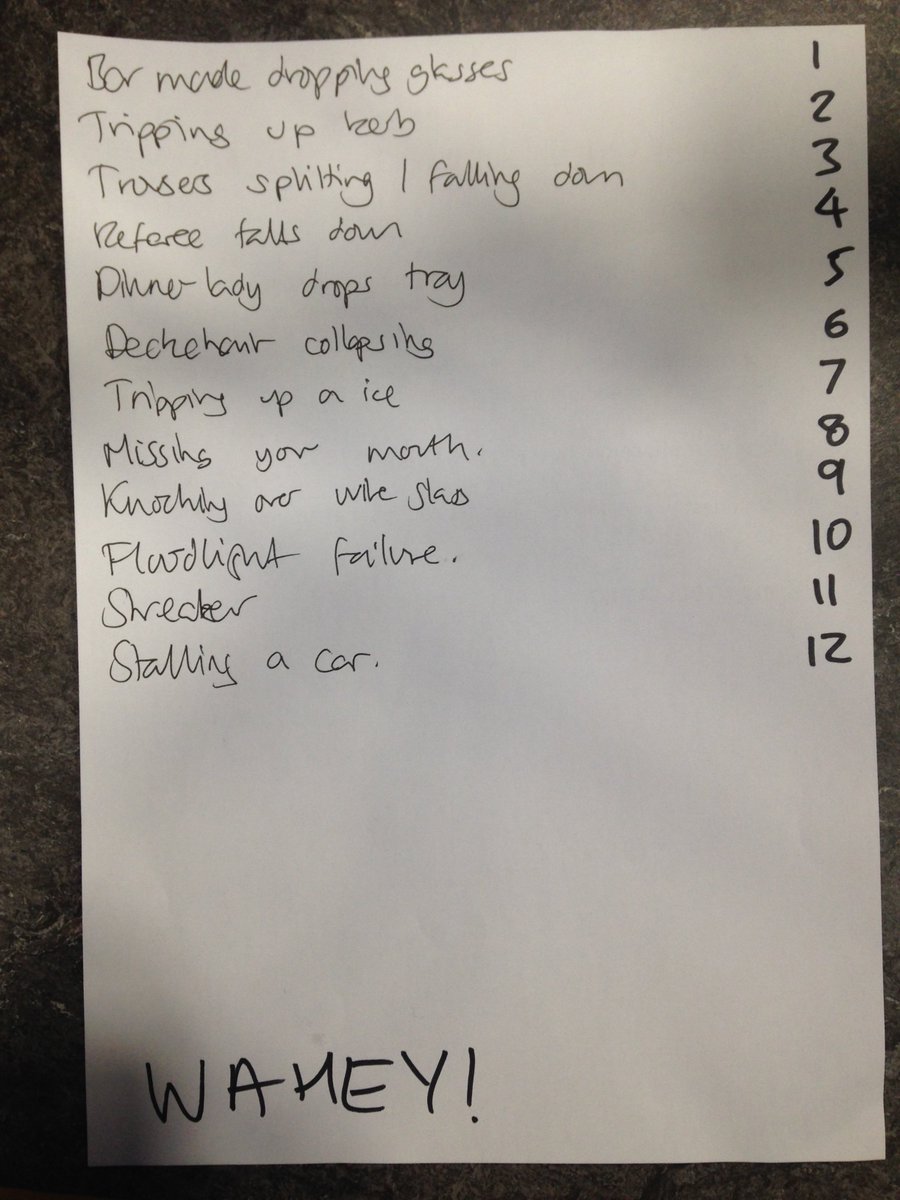 Bar made dropping glasses 1
Tripping up kerb 2
Trousers splitting / falling down 3
Referee falls down 4
Dinner lady drops tray 5
Deckchair collapsing 6
Tripping up a ice 7
Missing your mouth. 8
Knocking over wine glass 9
Floodlight failure. 10
Streaker 11
Stalling a car. 12
WAHEY!